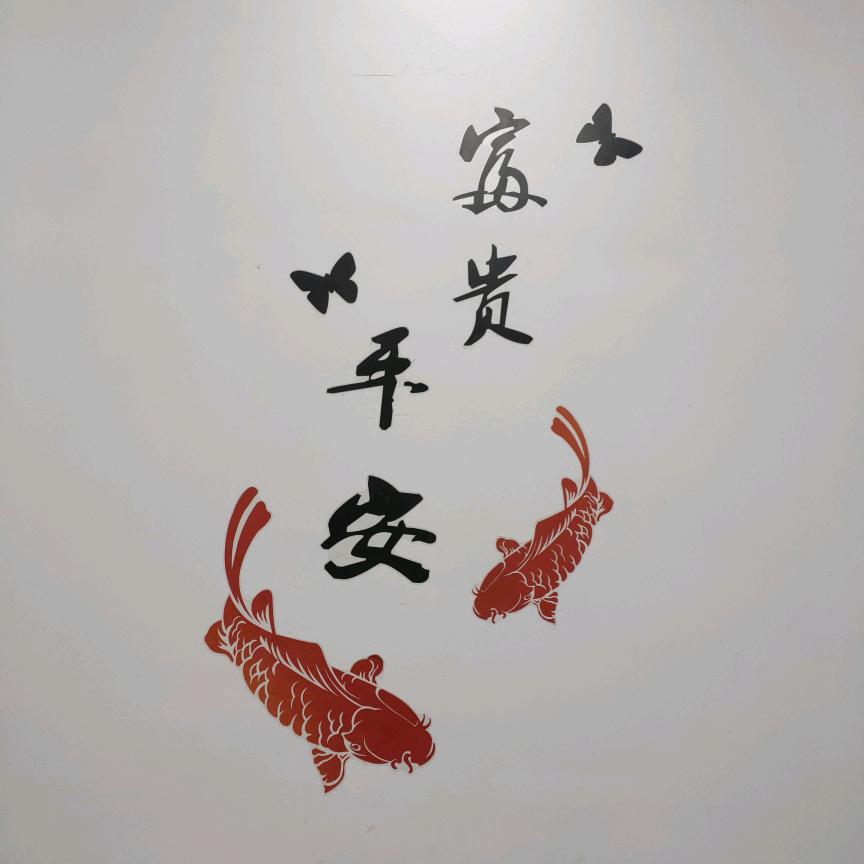 富贵
平安